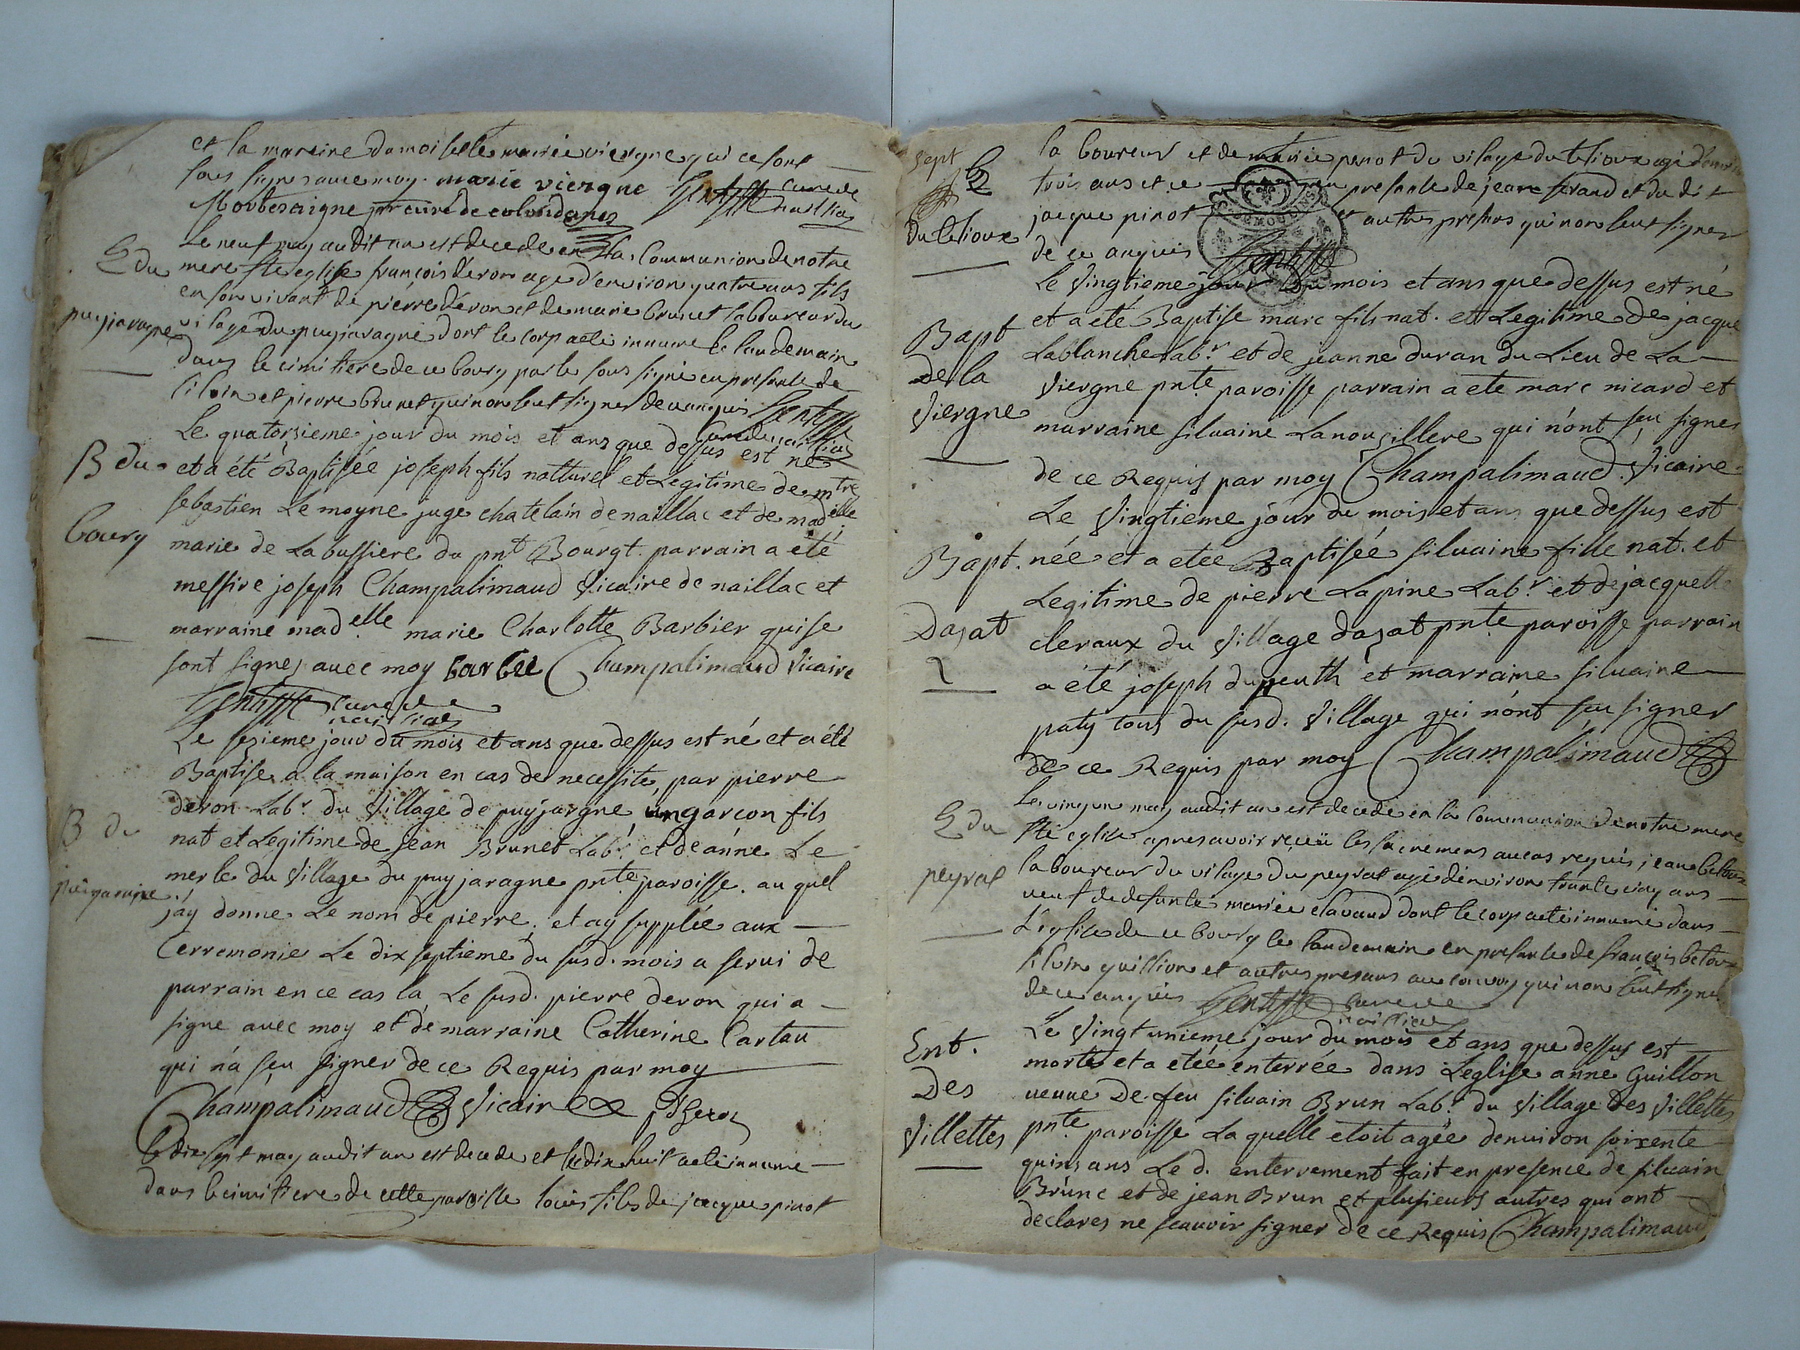 et la mareine damoiselle mariee viergne qui ce sont
sous signes avec moy. marie viergne Gentysse curé de
Morbesaigne pr curé de colondanes naillac
Le neuf may audit an est decede en la Communion de notre
E du mere ste eglise françois deron agé d'environ quatre ans fils
en son vivant de pierre deron et de marie brunet laboureur du
puyjaragne vilage du puyjaragne dont le corp a eté innumé le landemain
dans le cimitiere de ce bourg par le sous signé en presance de
silvin et pierre brunet qui non seut signer de ce anquis Gentysse
curé de naillac
Le quatorsieme jour du mois et ans que dessus est né
B du et a été Baptisée joseph fils natturel et Legitime de mtre
sebastien Le moyne juge chatelain de naillac et de madelle
bourg marie de Labussiere du pnt Bourgt. parrain a été
messire joseph Champalimaud Vicaire de naillac et
marraine madelle marie Charlotte Barbier qui se
sont signes avec moy barbié Champalimaud Vicaire
Gentysse curé de
naillac
Le sesieme jour du mois et ans que dessus est né et a été
Baptise a la maison en cas de necessite par pierre
deron Labr. du Village de puyjargne un garcon fils
B du nat et Legitime de jean Brunet Labr. et de anne Le
merle du Village du puyjaragne pnte paroisse. au quel
j'ay donne Le nom de pierre. et ay supplée aux
Cerremonie Le dix septieme du susd. mois a servi de
parrain en ce cas la Le susd. pierre deron qui a
signe avec moy et de marraine Catherine Cartau
qui n'a sçu signer de ce Requis par moy
Champalimaud Vicaire
Le dix sept may audit an est decede et le dix huit a eté innumé
dans le cimitiere de cette paroisse louis fils de jacque pinot
sept E la boureur et de mariee penot du vilage du telioux agé
trois ans et ce presance de jean et du dit
du telioux jacque pinot et autres presans qui non seut signer
de ce anquis Gentysse
Le Vingtieme jour du mois et ans que dessus est né
Bapt et a eté Baptise marc fils nat. et Legitime de jacque
Lablanche Labr. et de jeanne duran du Lieu de La
de la Viergne pnte paroisse parrain a ete marc nicard et
Viergne marraine silvaine Lanousillere qui n'ont sçu signer
de ce Requis par moy Champalimaud. Vicaire
Le Vingtieme jour du mois et ans que dessus est
Bapt. née et a etee Baptisée silvaine fille nat. et
Legitime de pierre Lapine Labr. et de jacquelle
Dasat cleraux du Village dasat pnte paroisse parrain
a été joseph dupeuth et marraine silvaine
paty tous du susd. Village qui n'ont sçu signer
de ce Requis par moy Champalimaud
E du Le vingun may audit an est decede en la Communion de notre mere
ste eglise apres avoir reçeü les sacremens au cas requis jean
peyrat laboureur du vilage du peyrat agé d'environ trante cinq ans
veuf de defunte mariee clavaud dont le corp a eté innumé dans
L'eglise de ce bourg le landemain en presance de françois
silvin quillion et autres presans au convoy qui non seut signer
de ce anquis Gentysse curé de
naillac
Ent. Le Vingt unieme jour du mois et ans que dessus est
morte et a etée enterrée dans Leglise anne Guillon
Des veuve De feu silvain Brun Labr. du Village Des Villettes
Villettes pnte paroisse Laquelle etoit agée denviron soixente
quins ans Le d. enterrement fait en presence de silvain
Brunc et de jean Brun et plusieurs autres qui ont
declares ne scauoir signer de ce Requis Champalimaud